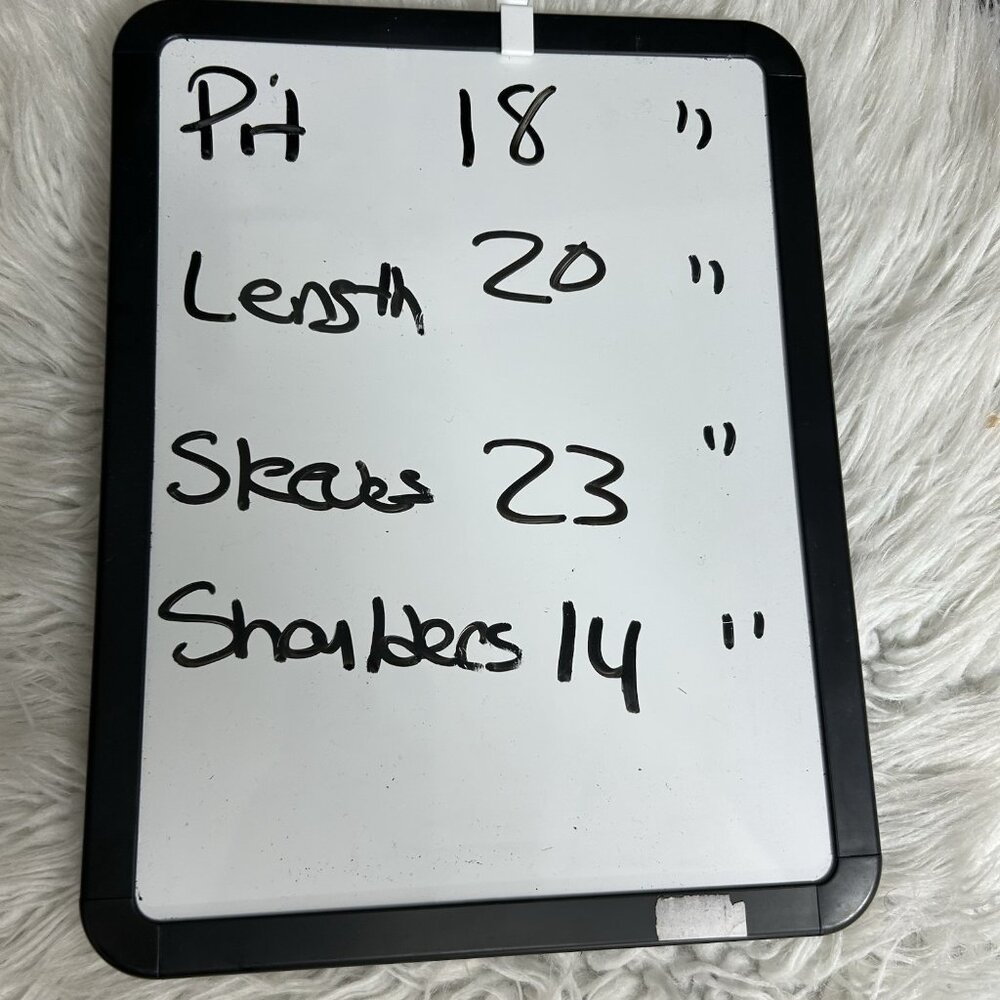 Pit 18 "
Length 20 "
Sleeves 23 "
Shoulders 14 "